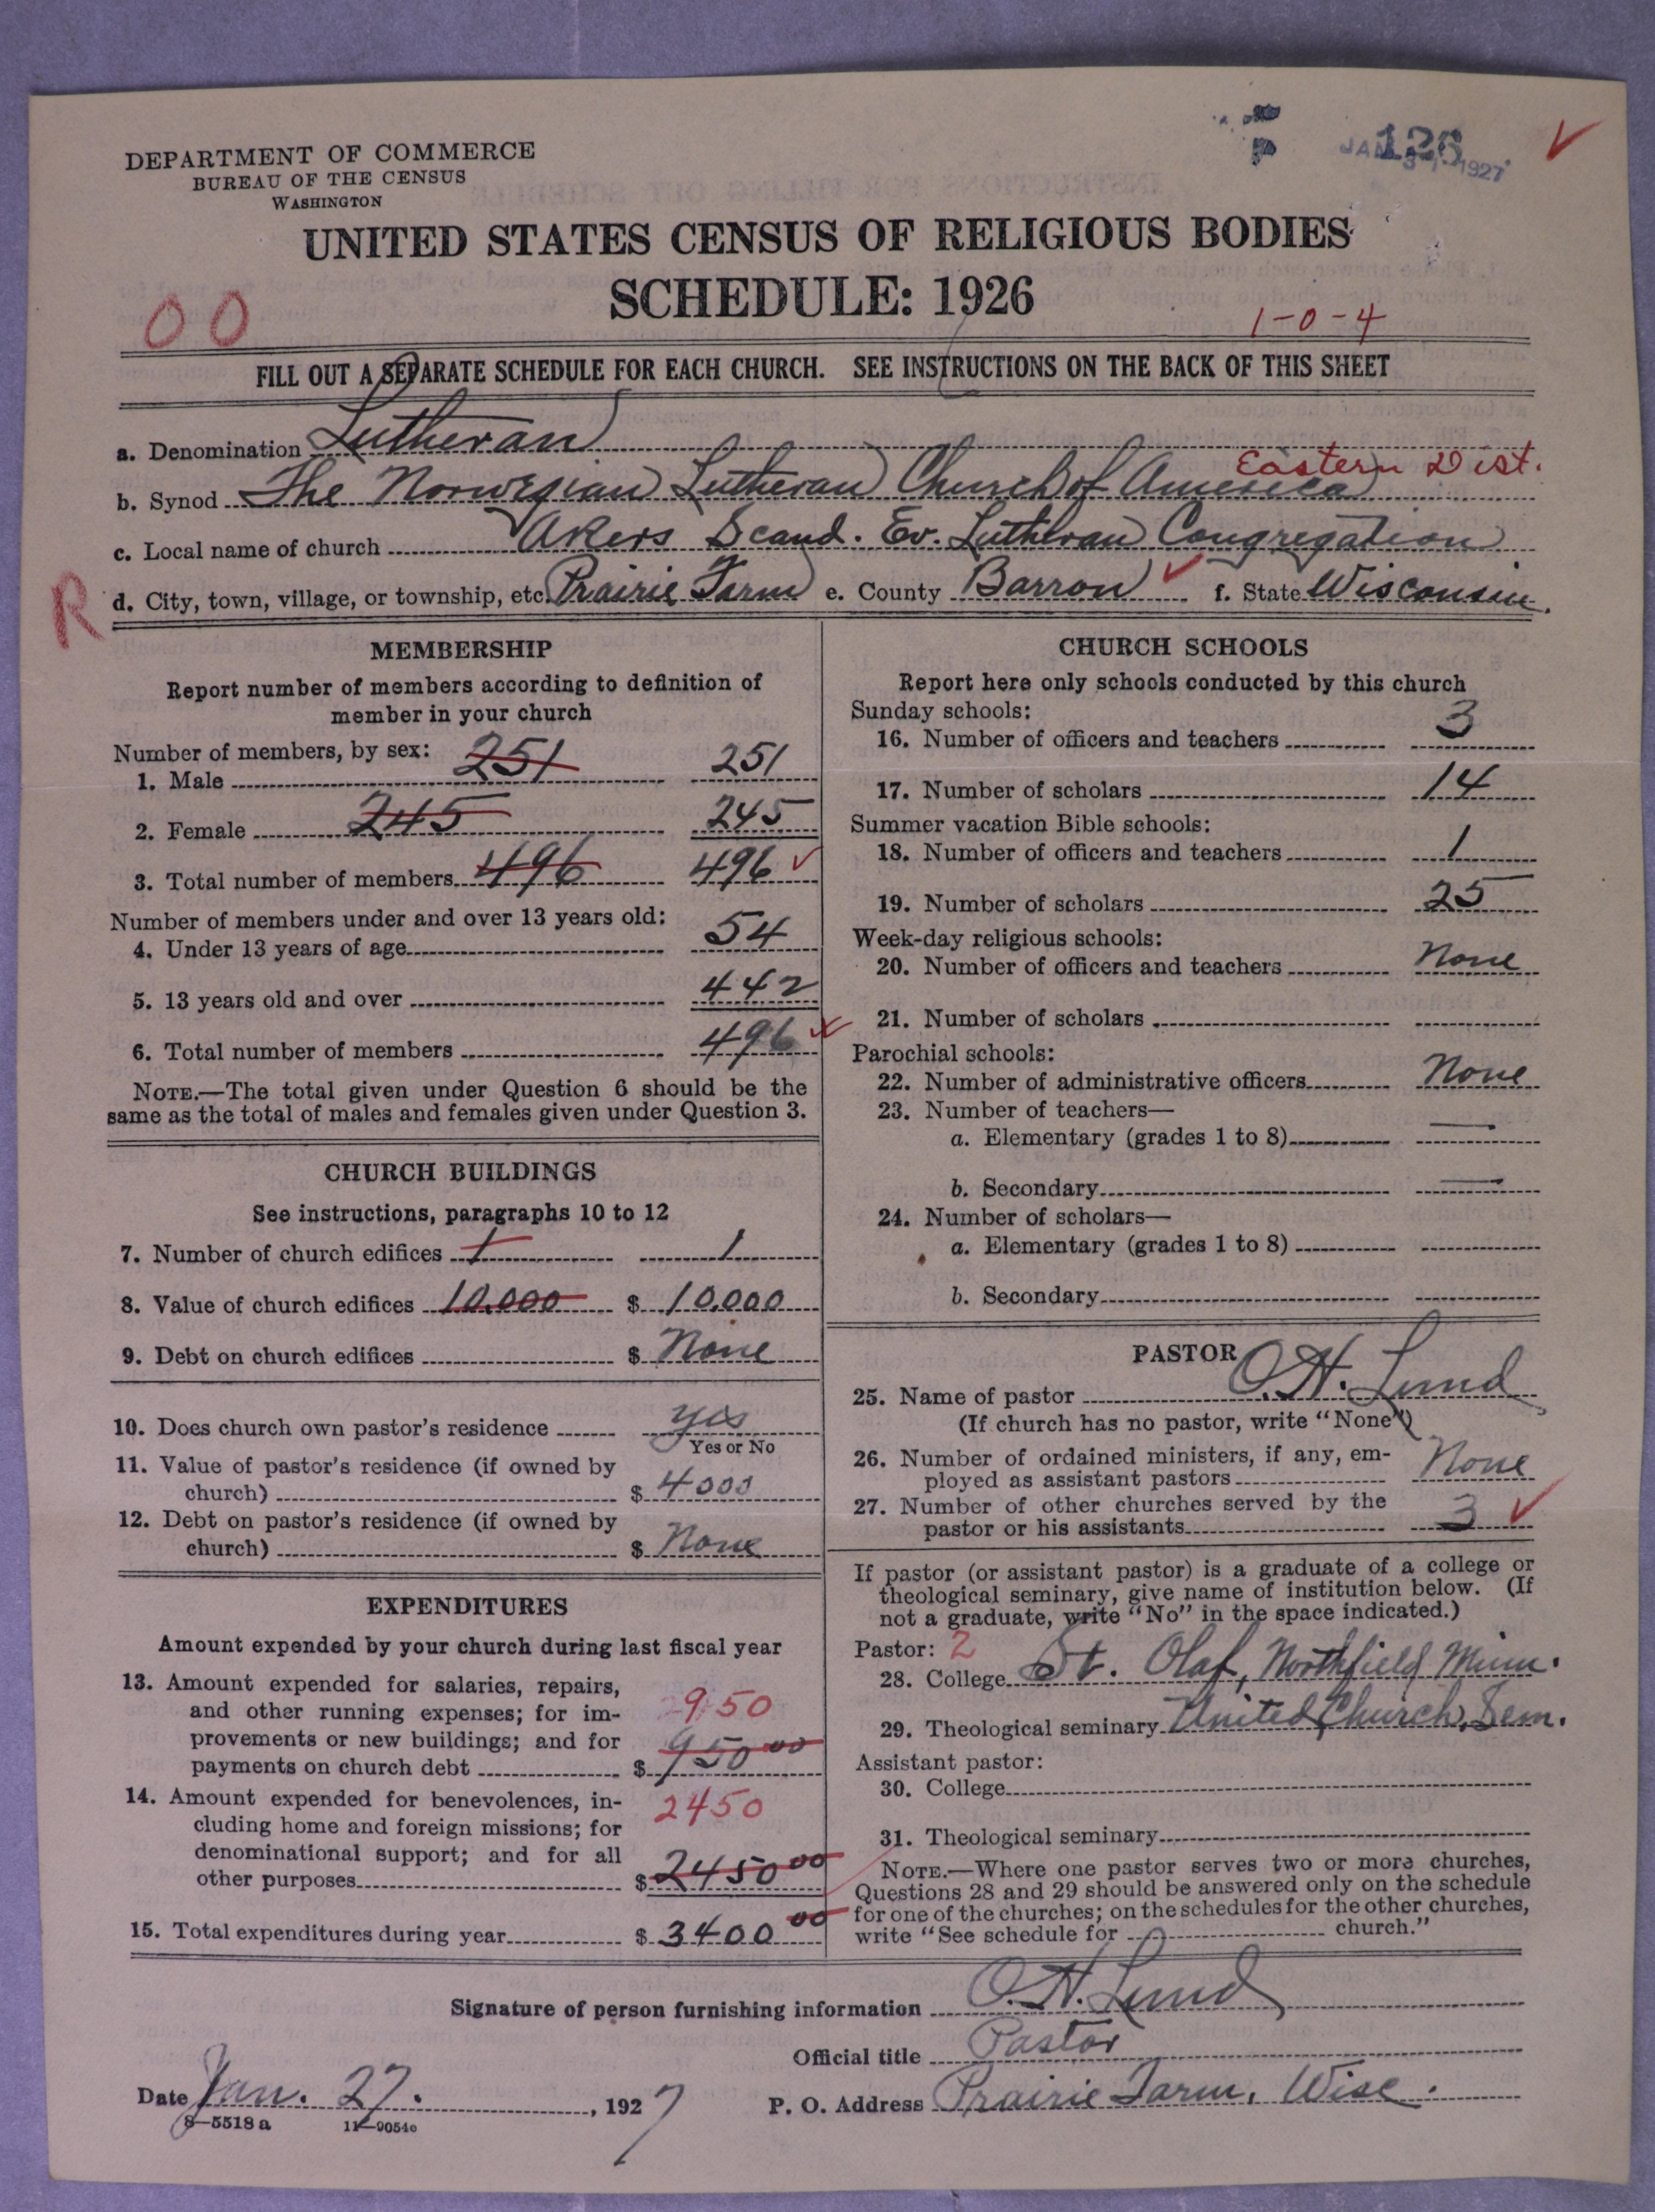 DEPARTMENT OF COMMERCE
BUREAU OF THE CENSUS
WASHINGTON
126
JAN 31 1927
UNITED STATES CENSUS OF RELIGIOUS BODIES
SCHEDULE: 1926
00
1-0-4
FILL OUT A SEPARATE SCHEDULE FOR EACH CHURCH. SEE INSTRUCTIONS ON THE BACK OF THIS SHEET
a. Denomination Lutheran
Eastern Dist.
b. Synod The Norwegian Lutheran Church of America
c. Local name of church Akers Scand. Ev. Lutheran Congregation
R
d. City, town, village, or township, etc. Prairie Farm e. County Barron f. State Wisconsin.
MEMBERSHIP
Report number of members according to definition of
member in your church
Number of members, by sex:
1. Male 251 251
2. Female 245 245
3. Total number of members 496 496
Number of members under and over 13 years old:
4. Under 13 years of age 54
5. 13 years old and over 442
6. Total number of members 496
NOTE.—The total given under Question 6 should be the
same as the total of males and females given under Question 3.
CHURCH BUILDINGS
See instructions, paragraphs 10 to 12
7. Number of church edifices 1 1
8. Value of church edifices 10.000 $ 10.000
9. Debt on church edifices $ None
10. Does church own pastor's residence yes
Yes or No
11. Value of pastor's residence (if owned by
church) $ 4000
12. Debt on pastor's residence (if owned by
church) $ None
EXPENDITURES
Amount expended by your church during last fiscal year
13. Amount expended for salaries, repairs,
and other running expenses; for im-
provements or new buildings; and for
payments on church debt $ 950 00
950
14. Amount expended for benevolences, in-
cluding home and foreign missions; for
denominational support; and for all
other purposes $ 2450 00
2450
15. Total expenditures during year $ 3400 00
CHURCH SCHOOLS
Report here only schools conducted by this church
Sunday schools:
16. Number of officers and teachers 3
17. Number of scholars 14
Summer vacation Bible schools:
18. Number of officers and teachers 1
19. Number of scholars 25
Week-day religious schools:
20. Number of officers and teachers None
21. Number of scholars
Parochial schools:
22. Number of administrative officers None
23. Number of teachers—
a. Elementary (grades 1 to 8) —
b. Secondary —
24. Number of scholars—
a. Elementary (grades 1 to 8)
b. Secondary
PASTOR
25. Name of pastor O.H. Lund
(If church has no pastor, write "None")
26. Number of ordained ministers, if any, em-
ployed as assistant pastors None
27. Number of other churches served by the
pastor or his assistants 3
If pastor (or assistant pastor) is a graduate of a college or
theological seminary, give name of institution below. (If
not a graduate, write "No" in the space indicated.)
Pastor: 2
28. College St. Olaf, Northfield Minn.
29. Theological seminary United Church, Sem.
Assistant pastor:
30. College
31. Theological seminary
NOTE.—Where one pastor serves two or more churches,
Questions 28 and 29 should be answered only on the schedule
for one of the churches; on the schedules for the other churches,
write "See schedule for church."
Signature of person furnishing information O.H. Lund
Official title Pastor
Date Jan. 27. , 1927
P. O. Address Prairie Farm, Wisc.
8—5518 a 11—9054c